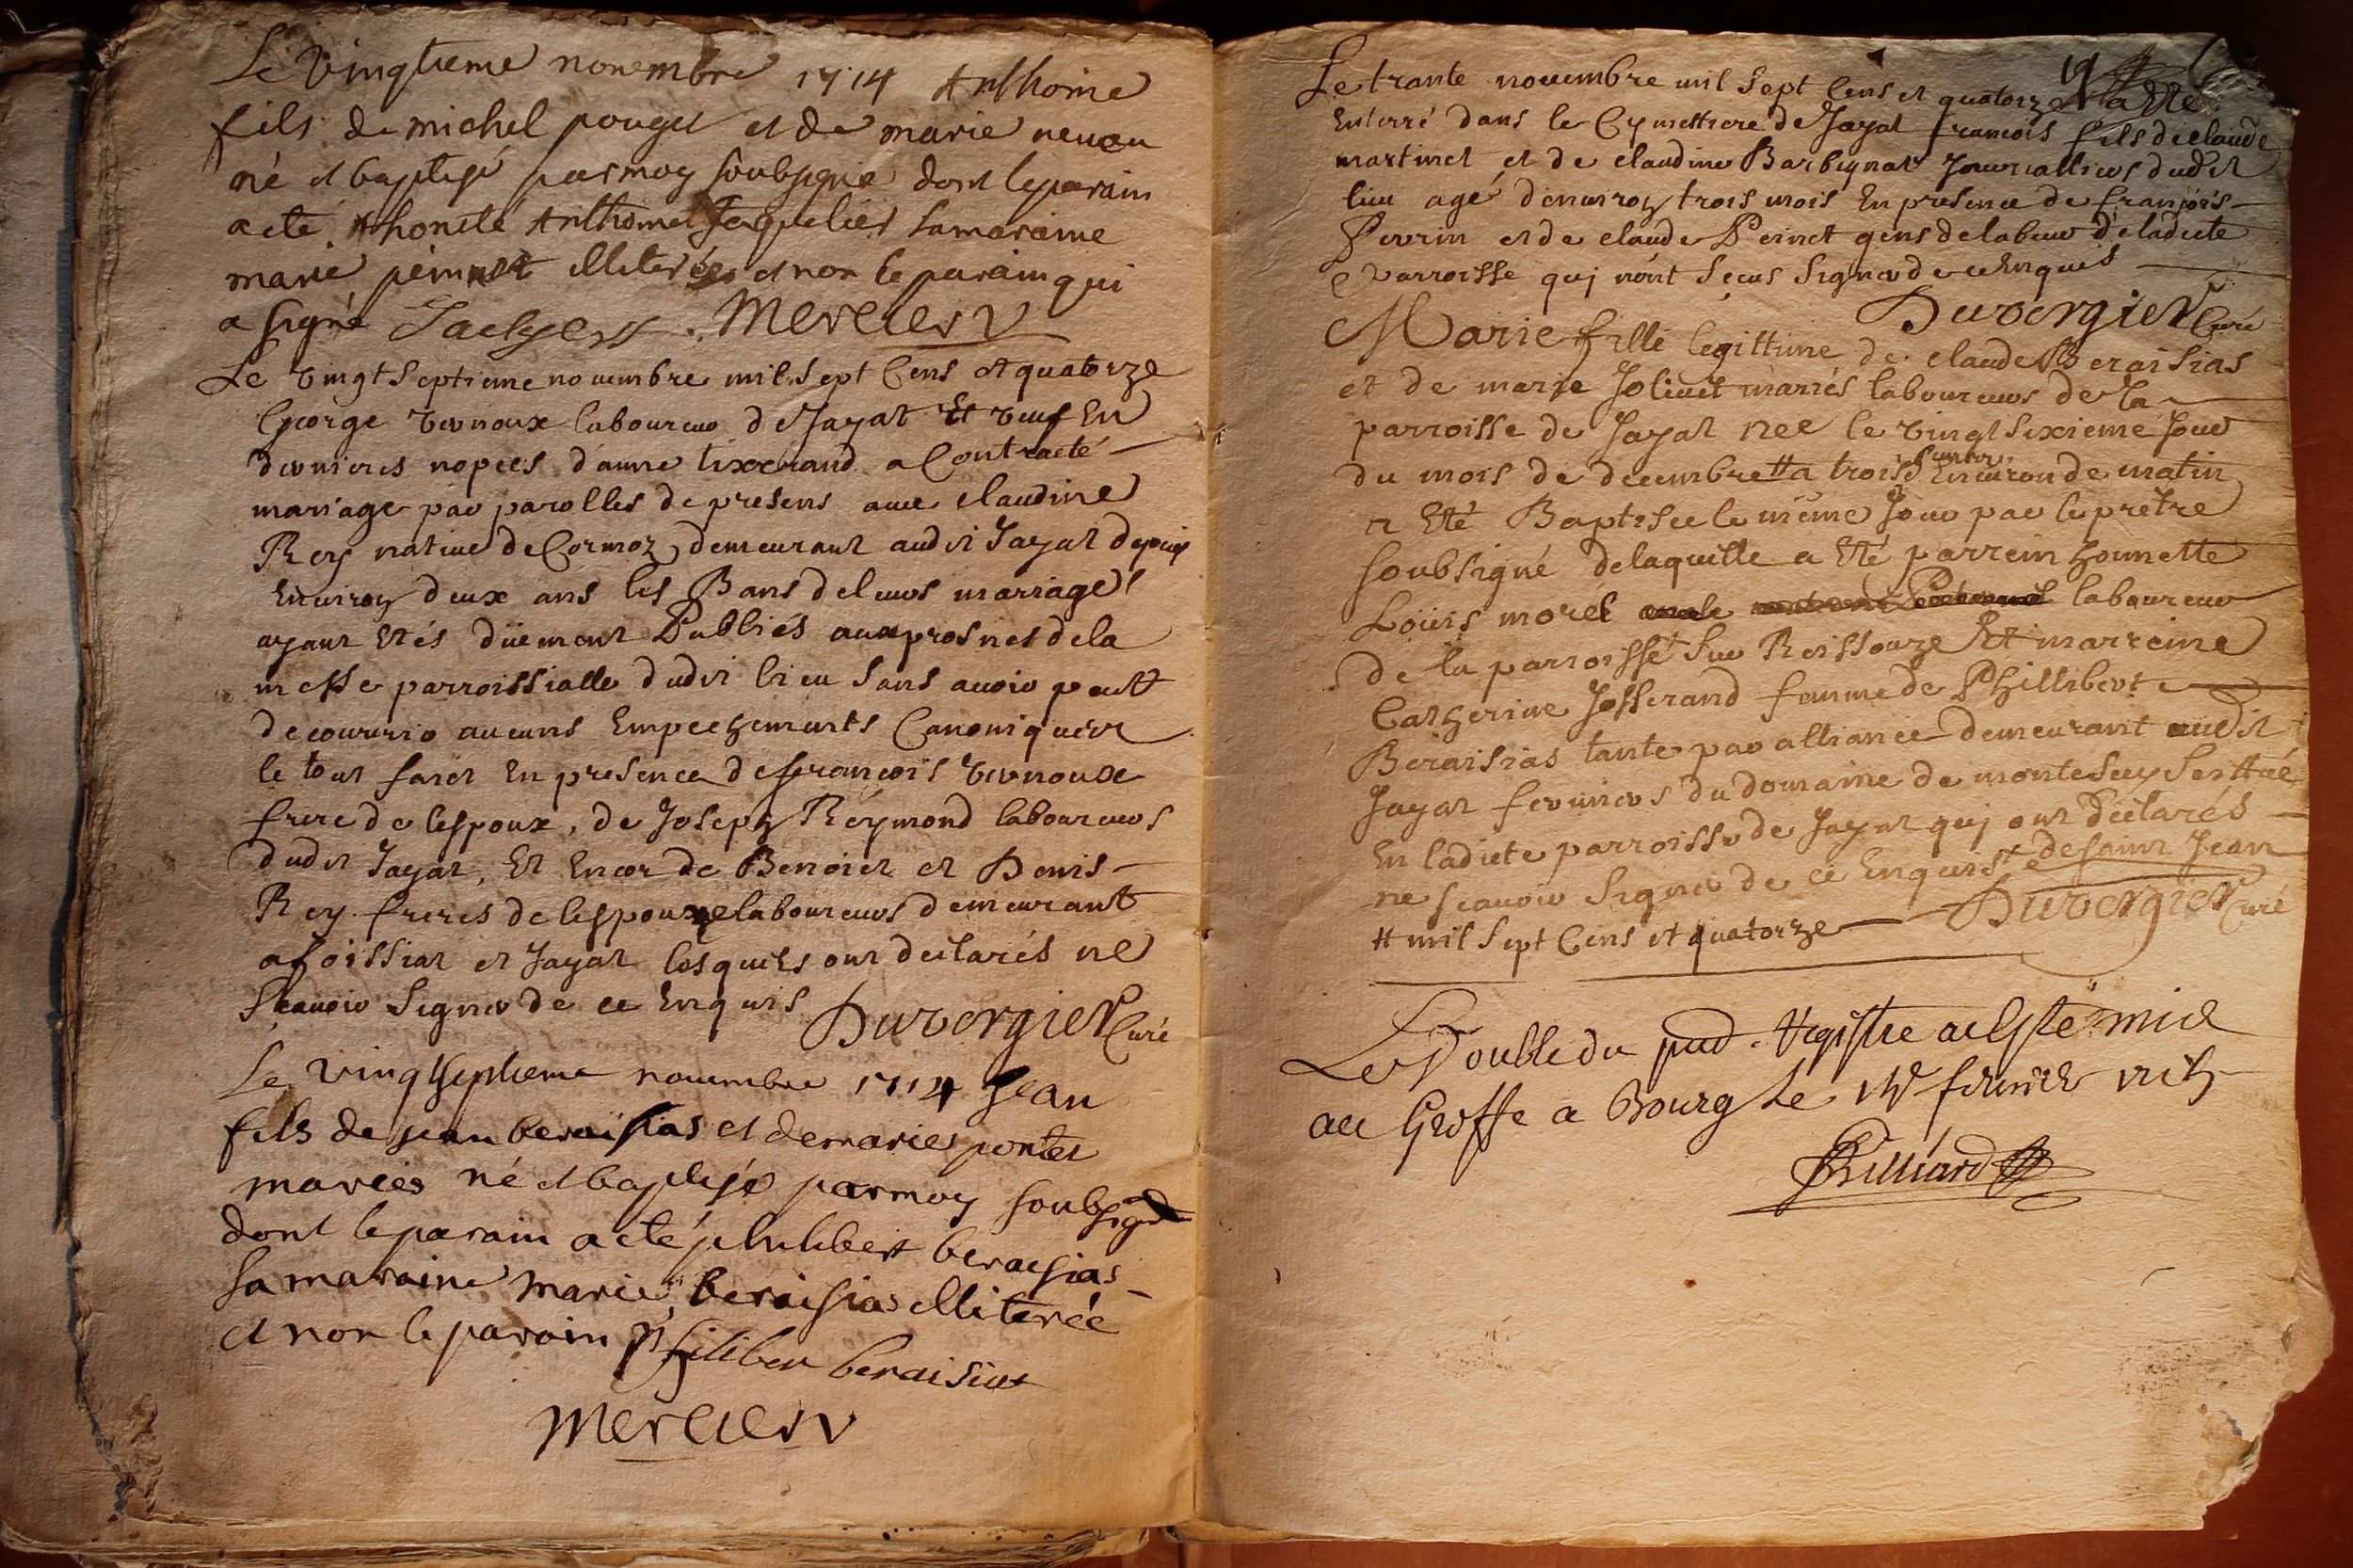 Le Vingtieme novembre 1714 Anthoine
fils de michel pouget et de marie neveu
né et baptisé par moy soubsigné dont le parain
a ete honcte Anthoine Jaquelier sa maraine
marie peinnet illiterée et non le parain qui
a signé Mercier
Le vingt Septieme novembre mil Sept Cens et quatorze
George vernoux laboureur de Jayat Et veuf En
dernieres nopces d'anne tixerand a Contracté
mariage par parolles de presens avec claudine
Rey native de Cormoz demeurant audit Jayat depuis
Environ deux ans les Bans de leurs marriage
ayant Etés düement Publiés aux prosnes de la
messe parroissialle dudit lieu Sans avoir peutt
decouvrir aucuns Empechements Canoniques
le tout faict En presence de francois vernoux
frere de lespoux, de Joseph Reymond laboureurs
dudit Jayat, Et Encor de Benoict et Denis
Rey freres de lespouxe laboureurs demeurant
a foissiat et Jayat lesquels ont déclarés ne
scavoir Signer de ce Enquis Duvergier Curé
Le vingt septieme novembre 1714 Jean
fils de jean beraisias et de marie pontet
mariés né et baptisé par moy soubsigné
dont le parain a eté philibert beraisias
sa maraine marie beraisias illiterée
et non le parain filiber beraisias
Mercier
19
Le trante novembre mil Sept Cens et quatorze a Eté
Enterré dans le Cymettiere de Jayat francois fils de claude
martinet et de claudine Barbignat Journalliers dudit
lieu agé denviron trois mois En presence de francois
Perrin et de claude Peinet gens de labeur de ladicte
parroisse quj nont Sceus Signer de ce Enquis
Duvergier Curé
Marie fille legittime de claude Beraisias
et de marie Jolivet mariés laboureurs de la
parroisse de Jayat née le vingt Sixieme Jour
du mois de decembre # a trois heures Environ de matin
a Eté Baptisée le même Jour par le prêtre
soubsigné de laquelle a Eté parrein honnette
Loüis morel laboureur
de la parroisse Sur Reissouze Et marreine
Catherine Josserand femme de Phillibert
Beraisias tante par alliance demeurant audit
Jayat fermiers du domaine de montesuy Sittué
En ladicte parroisse de Jayat quj ont déclarés
ne scavoir Signer de ce Enquis de saint Jean
# mil Sept Cens et quatorze Duvergier Curé
Le Double du pnt Registre a este mis
au Greffe a Bourg le fevrier
Billiard